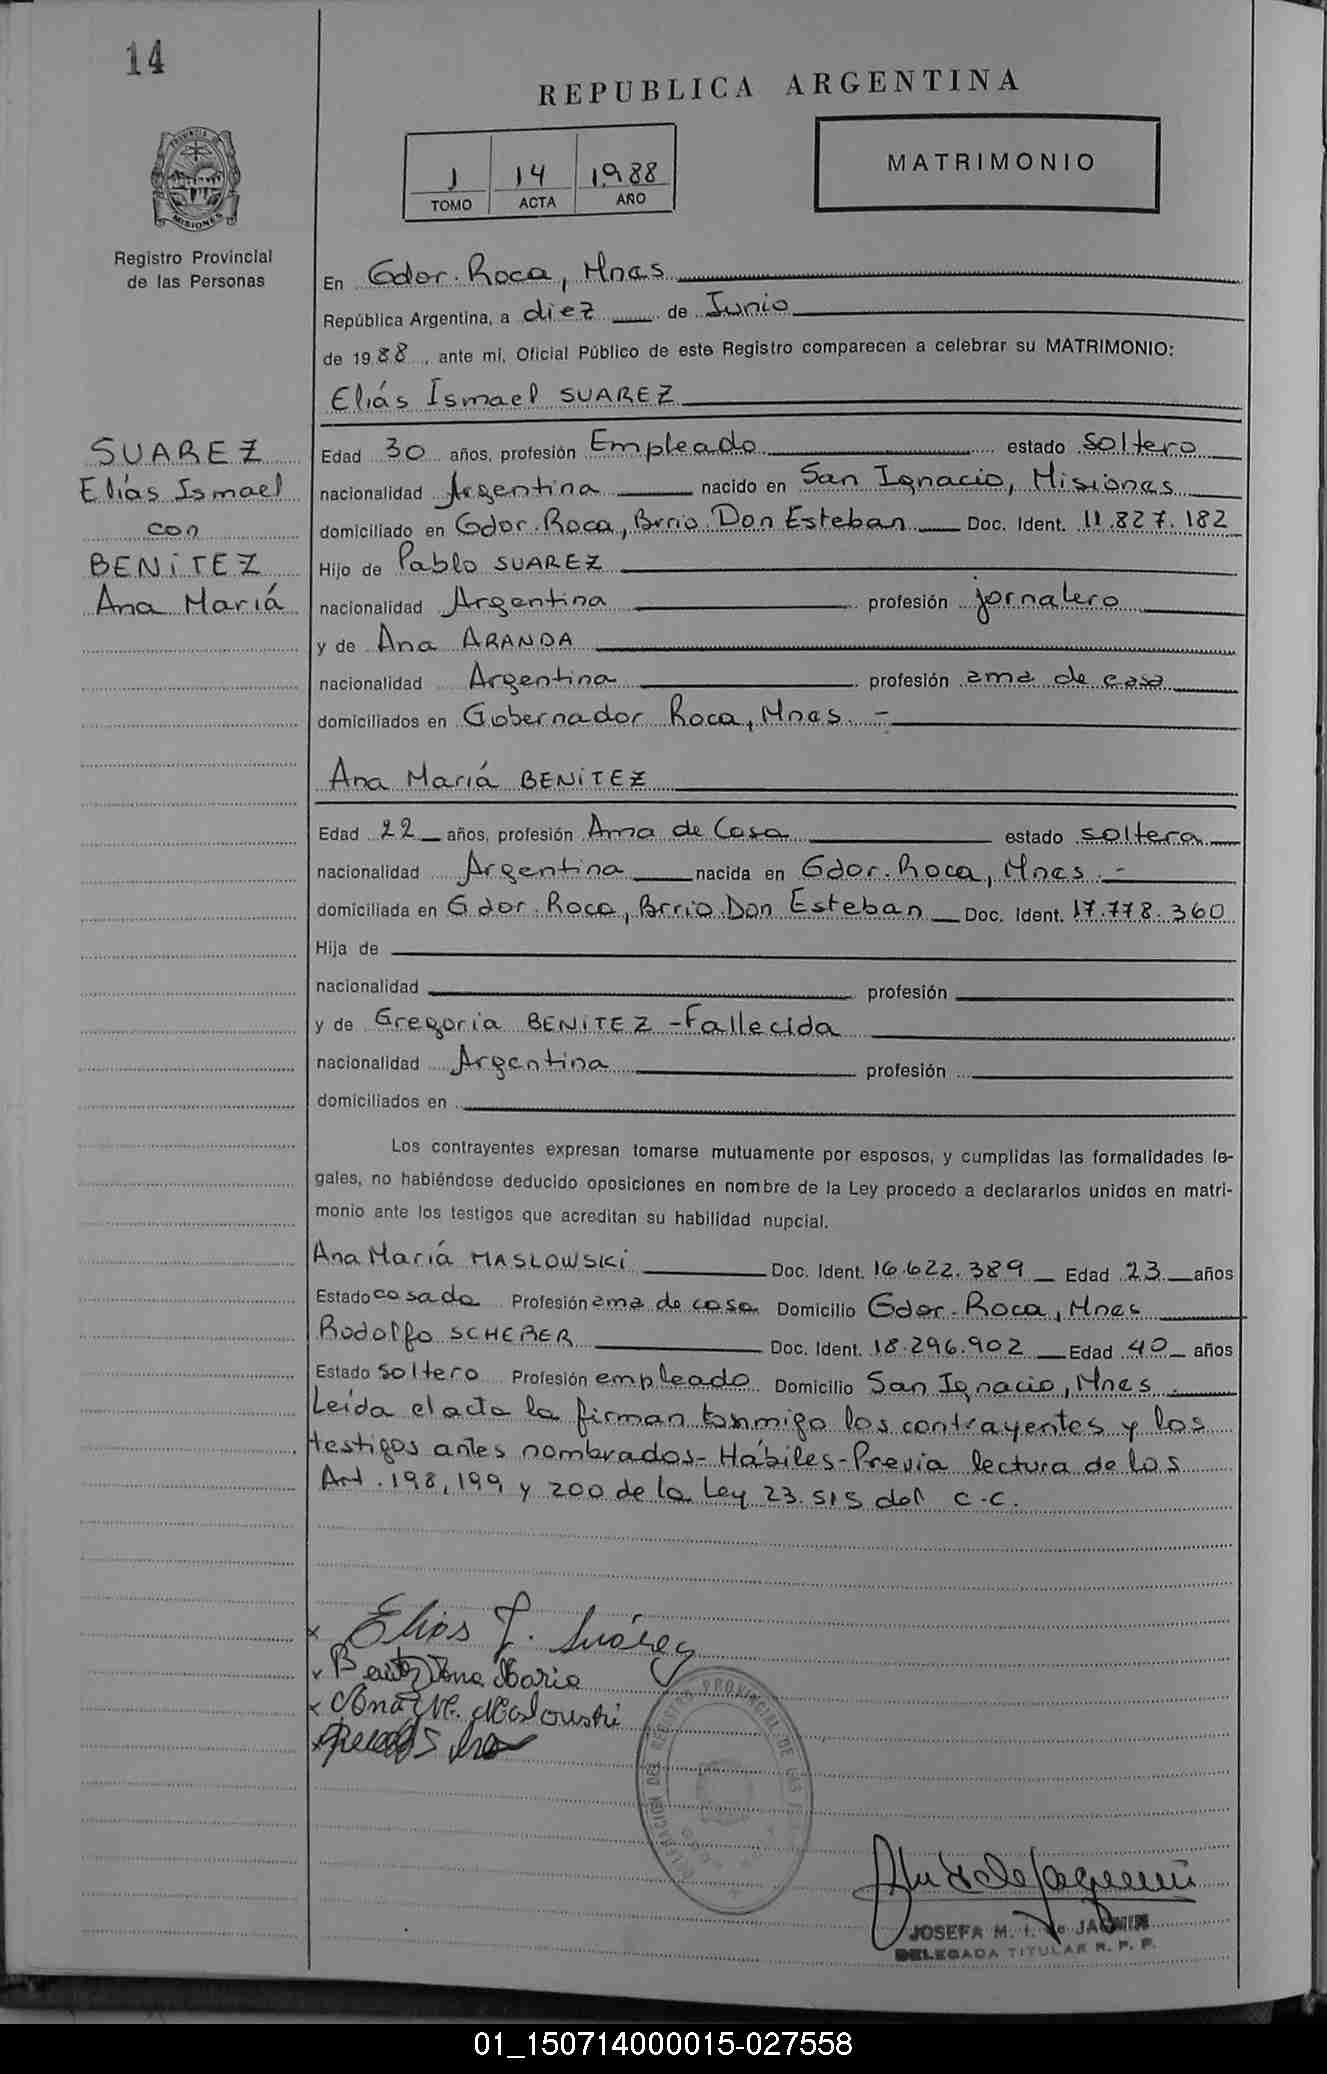 14
REPUBLICA ARGENTINA
PROVINCIA DE
MISIONES
1 14 1988
TOMO ACTA AÑO
MATRIMONIO
Registro Provincial
de las Personas
En Gdor. Roca, Mnes
República Argentina, a diez de Junio
de 1988, ante mi, Oficial Público de este Registro comparecen a celebrar su MATRIMONIO:
Elías Ismael SUAREZ
SUAREZ
Elías Ismael
con
BENiTEZ
Ana Mariá
Edad 30 años, profesión Empleado estado soltero
nacionalidad Argentina nacido en San Ignacio, Misiones
domiciliado en Gdor. Roca, Brrio. Don Esteban Doc. Ident. 11.827.182
Hijo de Pablo SUAREZ
nacionalidad Argentina profesión jornalero
y de Ana ARANDA
nacionalidad Argentina profesión ama de casa
domiciliados en Gobernador Roca, Mnes. -
Ana Mariá BENiTEZ
Edad 22 años, profesión Ama de Casa estado soltera
nacionalidad Argentina nacida en Gdor. Roca, Mnes. -
domiciliada en Gdor. Roca, Brrio. Don Esteban Doc. Ident. 17.778.360
Hija de
nacionalidad profesión
y de Gregoria BENiTEZ - Fallecida
nacionalidad Argentina profesión
domiciliados en
Los contrayentes expresan tomarse mutuamente por esposos, y cumplidas las formalidades le-
gales, no habiéndose deducido oposiciones en nombre de la Ley procedo a declararlos unidos en matri-
monio ante los testigos que acreditan su habilidad nupcial.
Ana Mariá MASLOWSKi Doc. Ident. 16.622.389 Edad 23 años
Estado casada Profesión ama de casa Domicilio Gdor. Roca, Mnes
Rodolfo SCHERER Doc. Ident. 18.296.902 Edad 40 años
Estado soltero Profesión empleado Domicilio San Ignacio, Mnes.
Leída el acta la firman conmigo los contrayentes y los
testigos antes nombrados - Hábiles - Previa lectura de los
Art. 198, 199 y 200 de la Ley 23.515 del C.C.
x Elias I. Suárez
x Benitez Ana Maria
x Ana M. Masloustri
DELEGACION DEL REGISTRO PROVINCIAL DE LAS
JOSEFA M. I. de
DELEGADA TITULAR R. P. P.
01_150714000015-027558